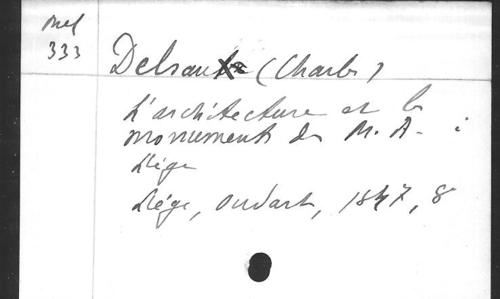 Mel
333
Delsaux (Charles)
L'architecture et les
monuments du M. A. à
Liége
Liége, Oudart, 1847, 8°